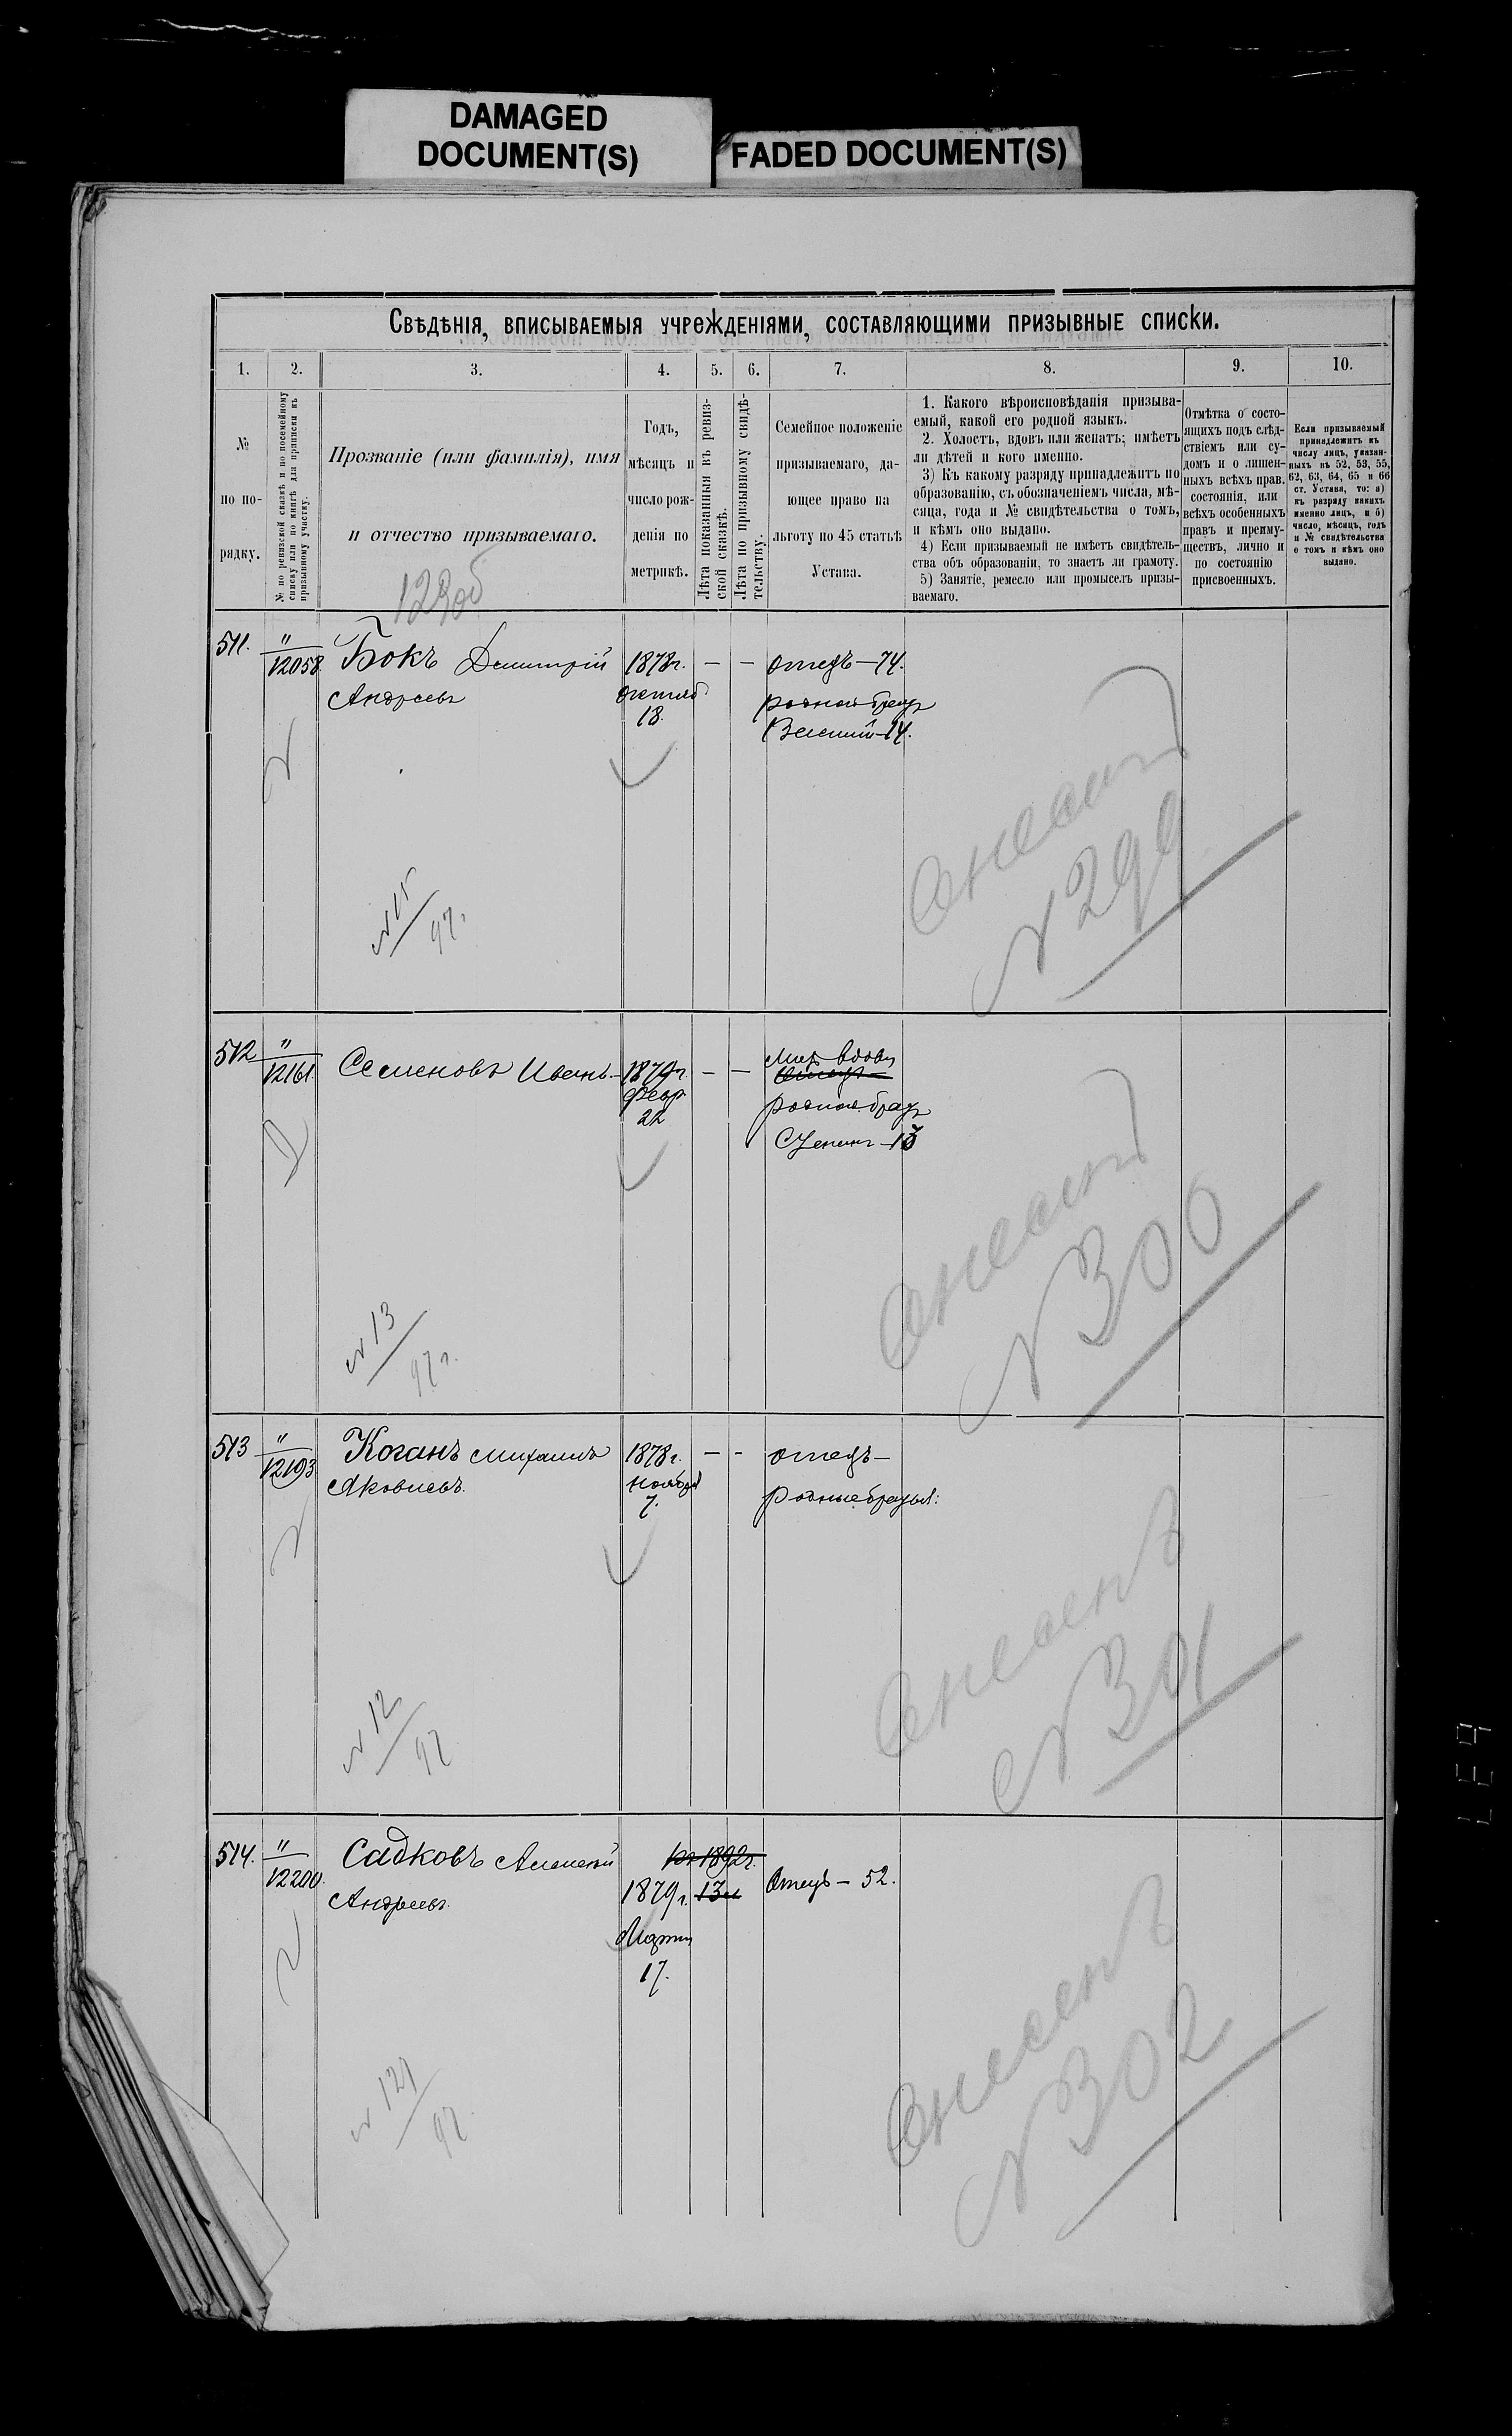 DAMAGED
DOCUMENT(S)
FADED DOCUMENT(S)
Свѣдѣнія, вписываемыя учрежденіями, составляющими призывные списки.
1. 2. 3. 4. 5. 6. 7. 8. 9. 10.
№
по по-
рядку.
№ по ревизской сказкѣ и по посемейному
списку или по книгѣ для приписки къ
призывному участку.
Прозваніе (или фамилія), имя
и отчество призываемаго.
Годъ,
мѣсяцъ и
число рож-
денія по
метрикѣ.
Лѣта показанныя въ ревиз-
ской сказкѣ.
Лѣта по призывному свидѣ-
тельству.
Семейное положеніе
призываемаго, да-
ющее право на
льготу по 45 статьѣ
Устава.
1. Какого вѣроисповѣданія призыва-
емый, какой его родной языкъ.
2. Холостъ, вдовъ или женатъ; имѣетъ
ли дѣтей и кого именно.
3) Къ какому разряду принадлежитъ по
образованію, съ обозначеніемъ числа, мѣ-
сяца, года и № свидѣтельства о томъ,
и кѣмъ оно выдано.
4) Если призываемый не имѣетъ свидѣтель-
ства объ образованіи, то знаетъ ли грамоту.
5) Занятіе, ремесло или промыселъ призы-
ваемаго.
Отмѣтка о состо-
ящихъ подъ слѣд-
ствіемъ или су-
домъ и о лишен-
ныхъ всѣхъ прав.
состоянія, или
всѣхъ особенныхъ
правъ и преиму-
ществъ, лично и
по состоянію
присвоенныхъ.
Если призываемый
принадлежитъ къ
числу лицъ, указан-
ныхъ въ 52, 53, 55,
62, 63, 64, 65 и 66
ст. Устава, то: а)
къ разряду какихъ
именно лицъ, и б)
число, мѣсяцъ, годъ
и № свидѣтельства
о томъ и кѣмъ оно
выдано.
511. " 12058 Бокъ Димитрій 1878г. — — отецъ—74.
Андреевъ октяб. родной братъ
18. Василій—14.
№ 15
97г.
№ 299
512 " 12161. Семеновъ Иванъ 1879г. — — Мать вдова
февр
22 родной братъ
№ 13
97г.
№ 300
513 " 12193 Коганъ Михаилъ 1878г. — — отецъ—
Яковлевъ. ноября родные братья:
7.
№ 12
97
№ 301
514. " 12200. Садковъ Алексѣй 1892г.
Андреевъ. 1879г. 13 Отецъ — 52.
Марта
17.
№ 121
97
№ 302